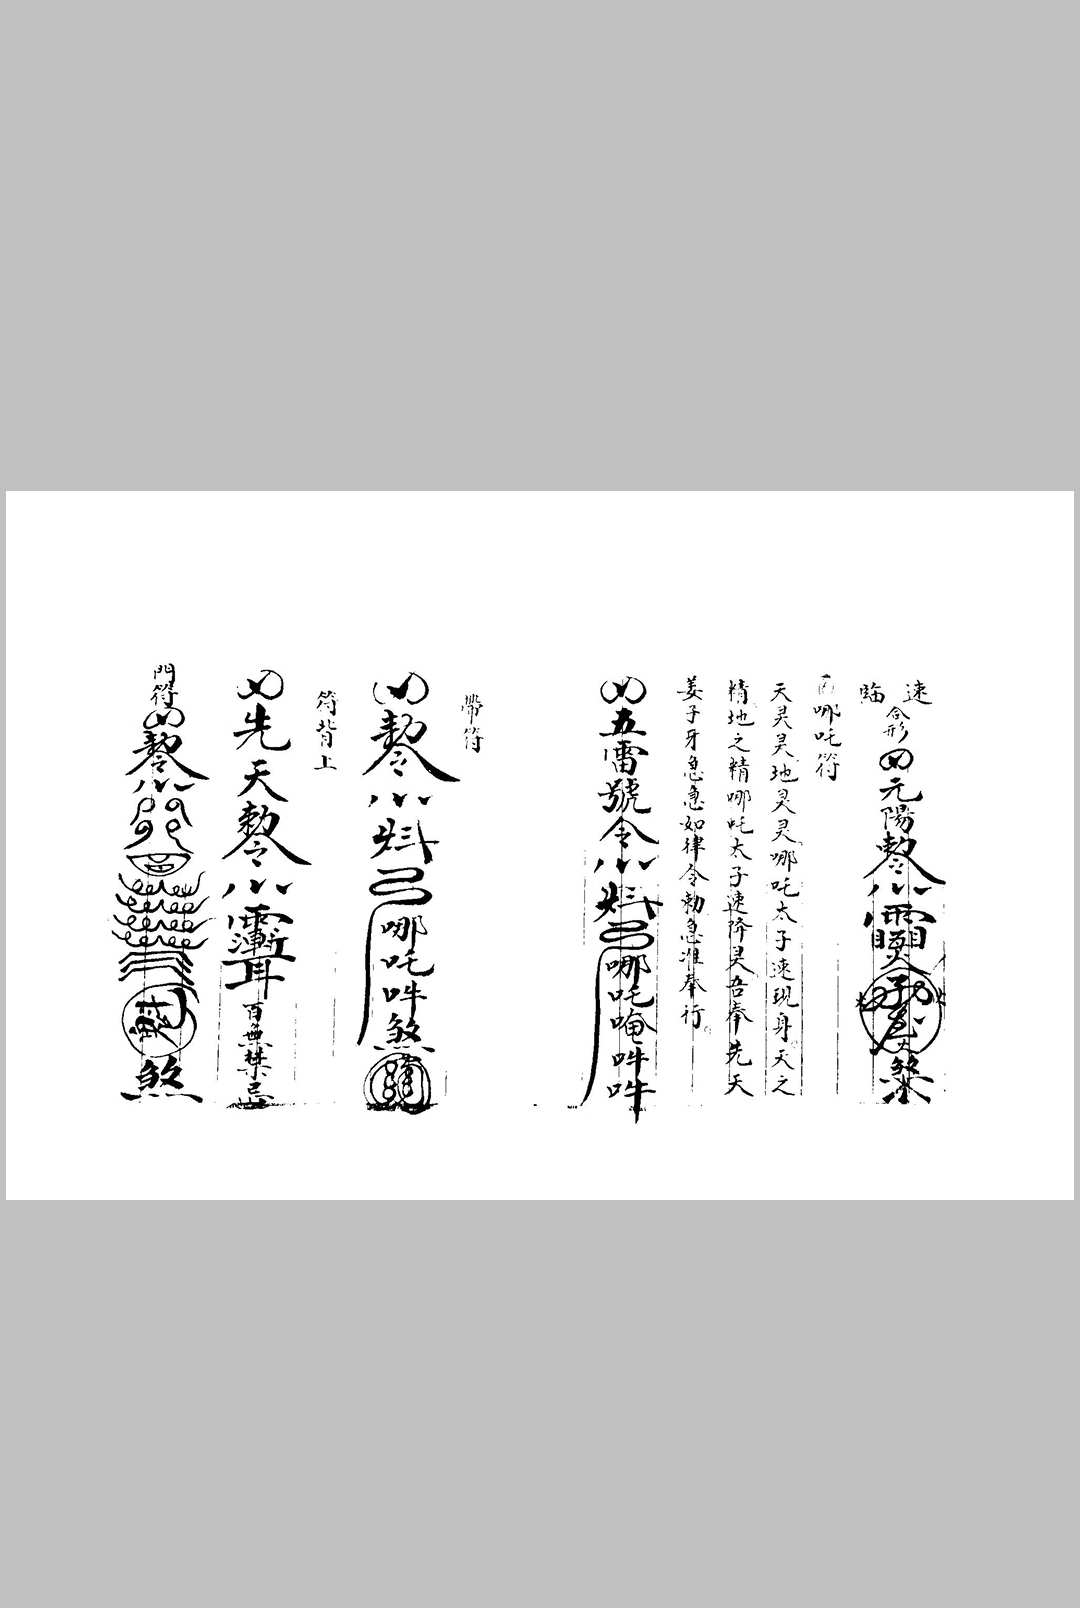 速臨
合形
元陽敕令
煞
哪吒符
天灵灵地灵灵哪吒太子速現身天之
精地之精哪吒太子速降灵吾奉先天
姜子牙急急如律令勅急准奉行。
五雷號令
哪吒唵吽吽
帶符
敕令
哪吒吽煞
符背上
先天敕令
百無禁忌
門符
敕令
煞